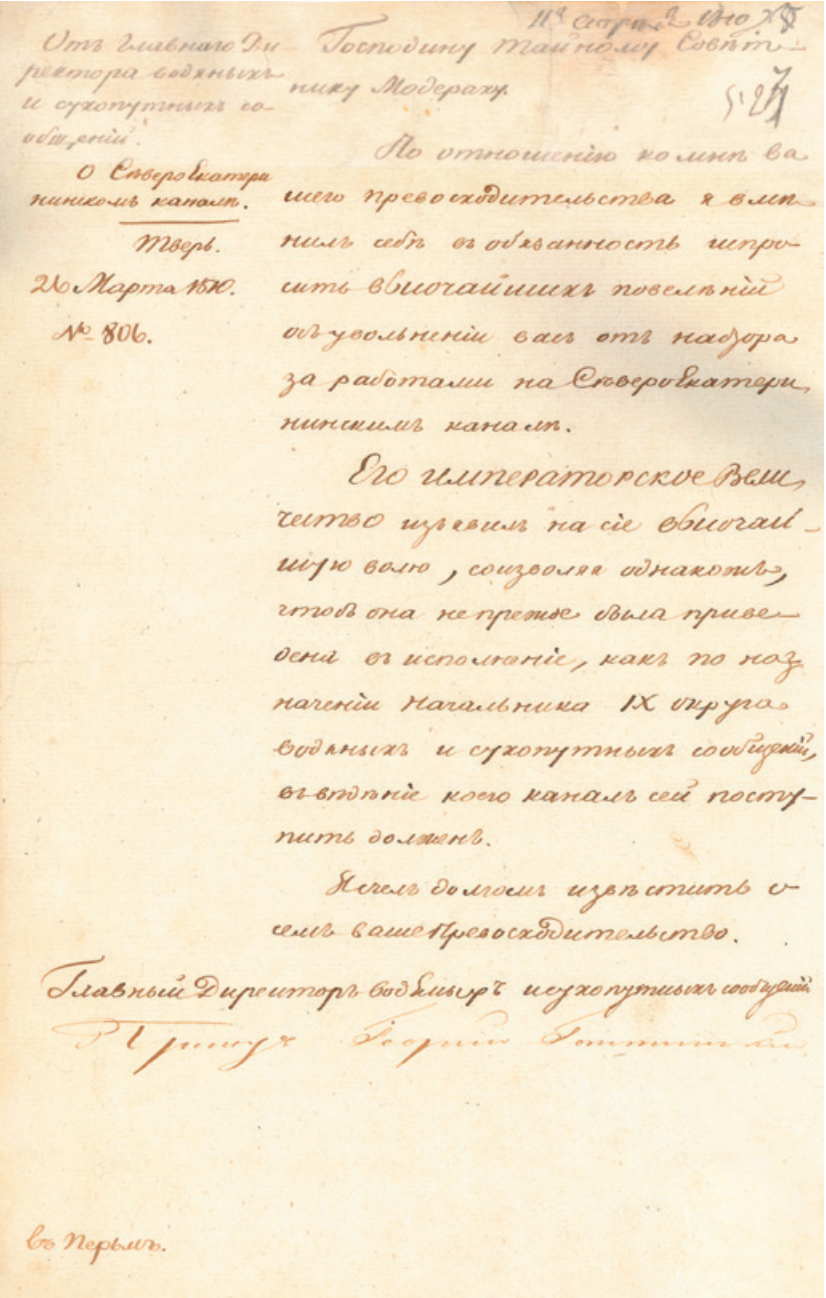 11го апреля 1810
Отъ Главнаго Ди-
ректора водяныхъ
и сухопутныхъ со-
общеній.
О СѣвероЕкатери
нинскомъ каналѣ.
Тверь.
26 Марта 1810.
№ 806.
Господину Тайному Совѣт-
нику Модераху.
По отношенію ко мнѣ ва
шего превосходительства я вмѣ
нилъ себѣ въ обязанность испро
сить высочайшихъ повелѣній
объ увольненіи васъ отъ надзора
за работами на СѣвероЕкатери
нинскимъ каналѣ.
Его императорское Вели
чество изъявилъ на сіе высочай-
шую волю, соизволяя однакожъ,
чтобъ она не прежде была приве
дена въ исполненіе, какъ по наз
наченіи Начальника IX округа
водяныхъ и сухопутныхъ сообщеній,
въ вѣдѣніе коего каналъ сей посту-
пить долженъ.
Я счелъ долгомъ извѣстить о
семъ ваше Превосходительство.
Главный Директоръ водяныхъ и сухопутныхъ сообщеній
Принцъ Георгій
въ Пермь.